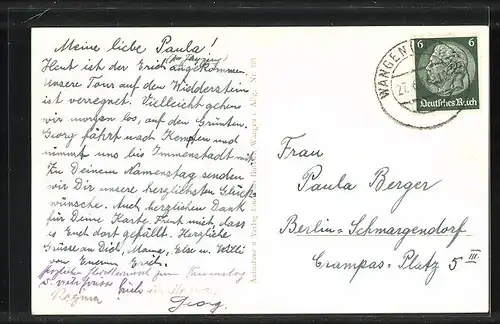 Meine liebe Paula!
Heut ist der Erich angekommen.
Unsere Tour auf den Widderstein
ist verregnet. Vielleicht gehen
wir morgen los, auf den Grünten.
Georg fährt nach Kempten und
nimmt uns bis Immenstadt mit.
Zu Deinem Namenstag senden
wir Dir unsere herzlichsten Glück-
wünsche. Auch herzlichen Dank
für Deine Karte. Freut mich, dass
es Euch dort gefällt. Herzliche
Grüsse an Dich, Mama, Else u. Willi
von Eurem Erich.
zum Namenstag
Regina
Georg.
WANGEN
6 6
Deutsches Reich
Frau
Paula Berger
Berlin-Schmargendorf
Crampas-Platz 5 III